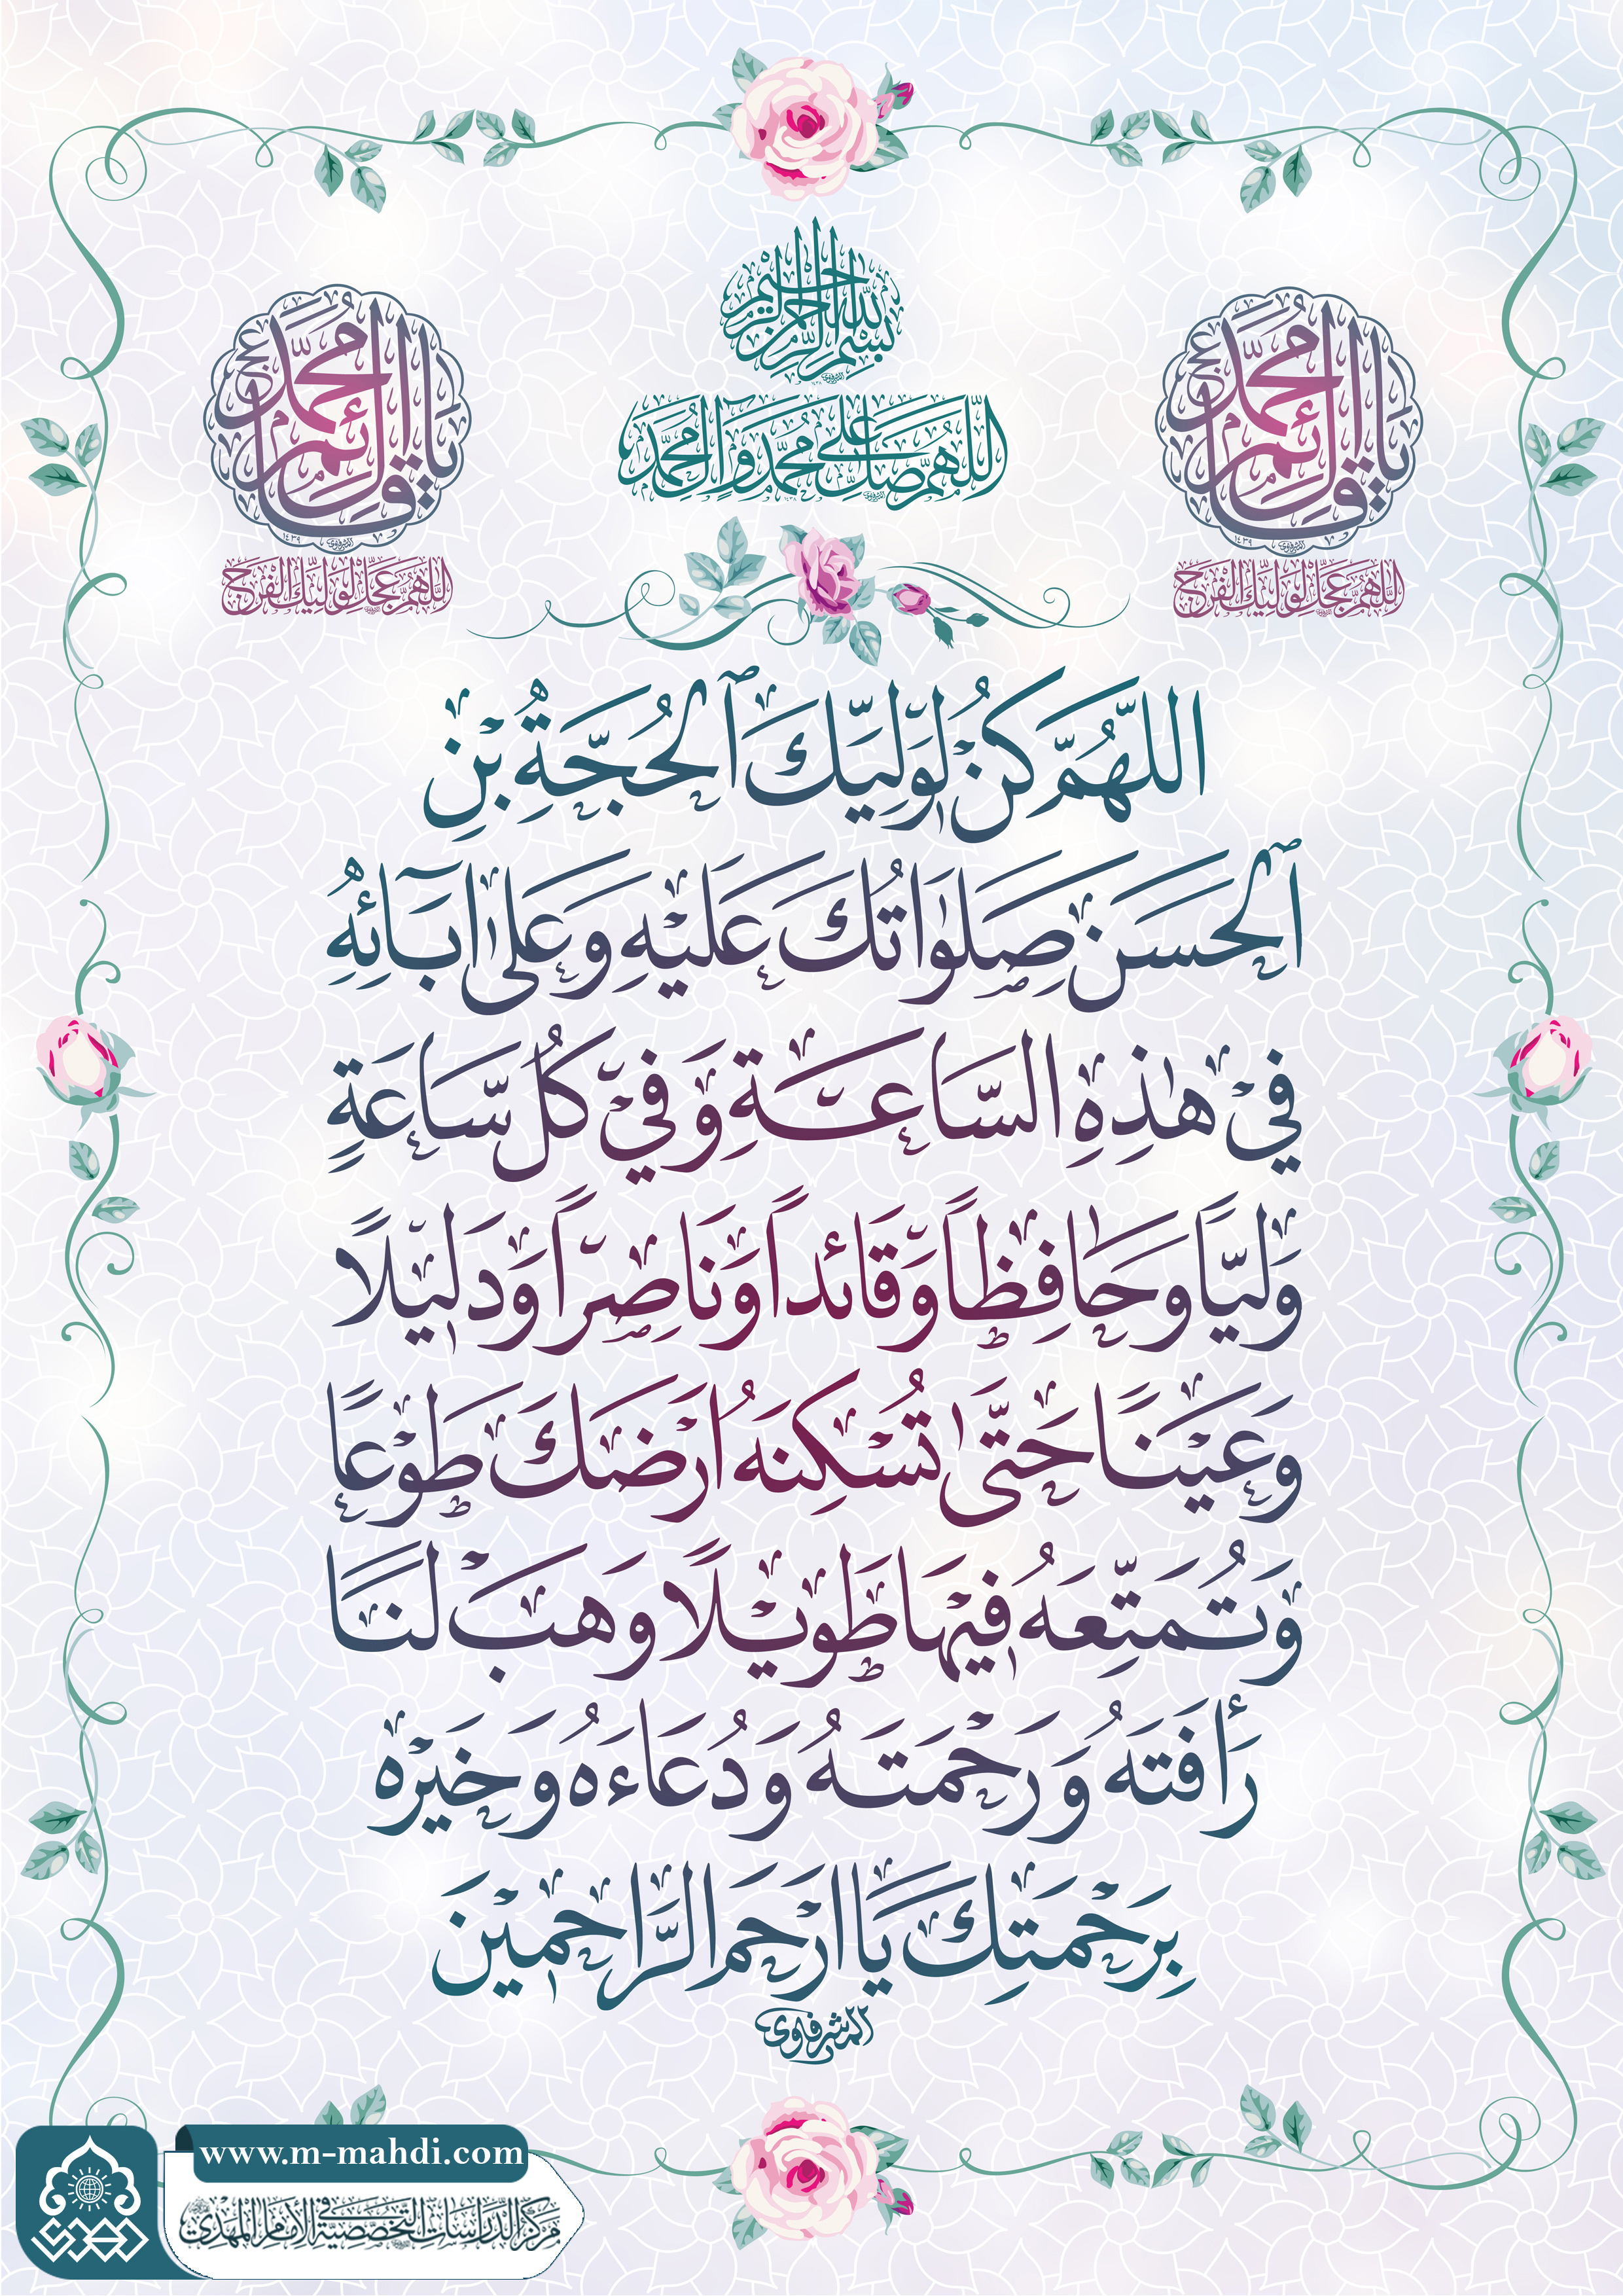 بِسْمِ اللهِ الرَّحْمنِ الرَّحِيمِ
اللّهُمَّ صَلِّ عَلى مُحَمَّد وَآلِ مُحَمَّد
يا قائم آل محمد عج
١٤٣٩
اللّهُمَّ عَجِّل لِوَلِيِّكَ الفَرَج
يا قائم آل محمد عج
١٤٣٩
اللّهُمَّ عَجِّل لِوَلِيِّكَ الفَرَج
اللّهُمَّ كُنْ لِوَلِيِّكَ ٱلحُجَّةِ بْنِ
ٱلحَسَنِ صَلَواتُكَ عَلَيْهِ وَعَلى آبَائِهِ
فِي هذِهِ السَّاعَةِ وَفِي كُلِّ سَاعَةٍ
وَلِيًّا وَحَافِظاً وَقَائداً وَنَاصِراً وَدَلِيلًا
وَعَيْنًا حَتَّى تُسْكِنَهُ أَرْضَكَ طَوْعًا
وَتُمَتِّعَهُ فِيهَا طَوِيْلًا وَهَبْ لَنَا
رَأفَتَهُ وَرَحْمَتَهُ وَدُعَاءَهُ وَخَيْرَه
بِرَحْمَتِكَ يَا ارْحَمَ الرَّاحِمِيْنَ
المشرفاوي
www.m-mahdi.com
مركز الدراسات التخصصية في الإمام المهدي